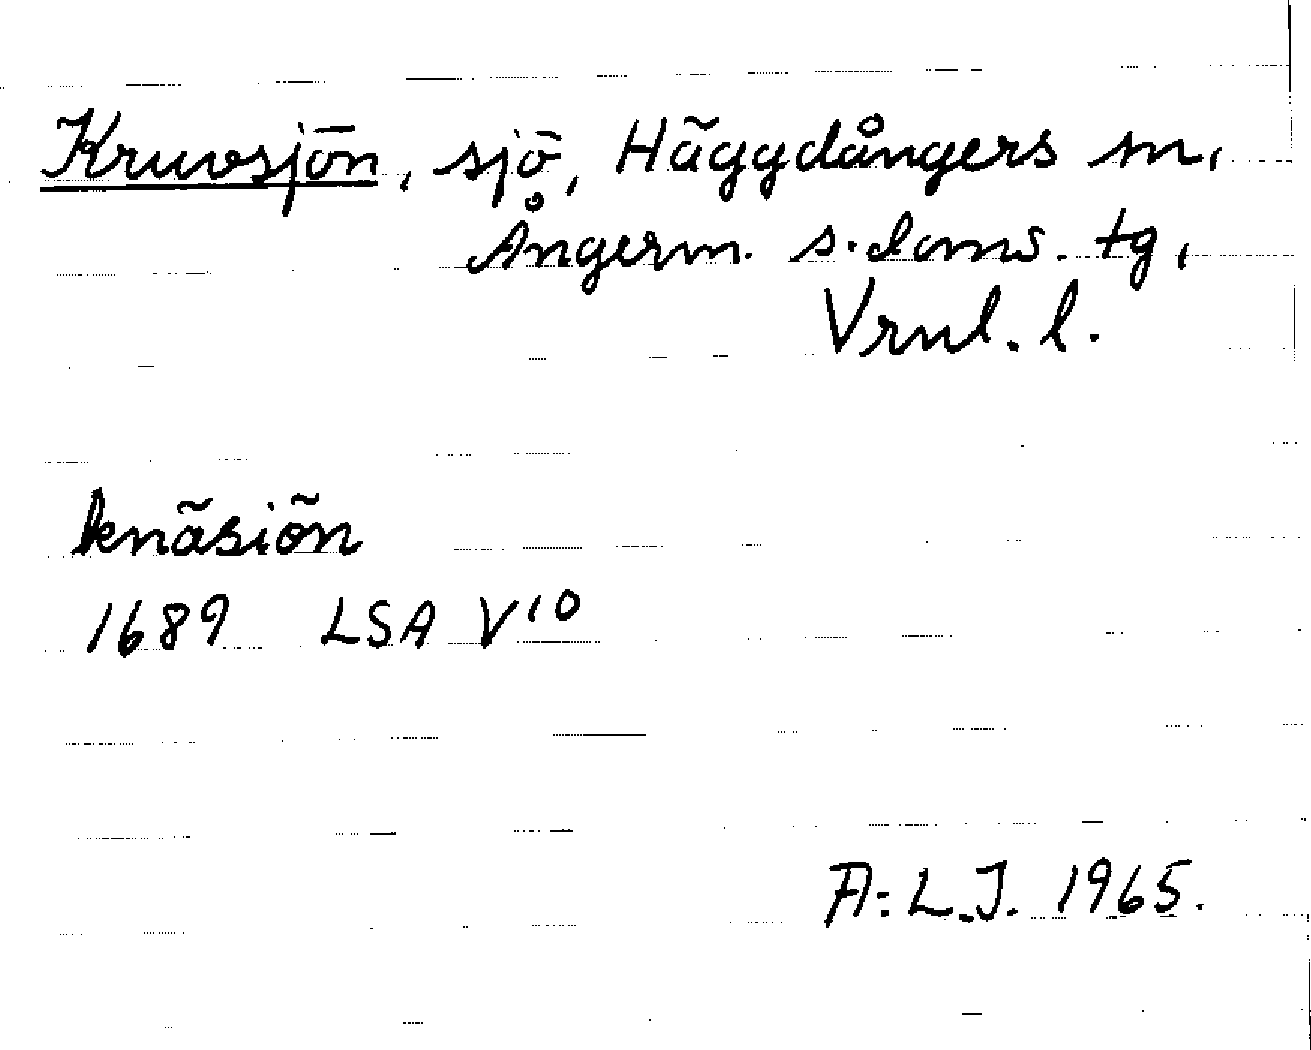 Kruvsjön, sjö, Häggdångers sn,
Ångerm. s. doms. tg,
Vrnl. l.
knäsiön
1689 LSA V¹⁰
A:L.J. 1965.